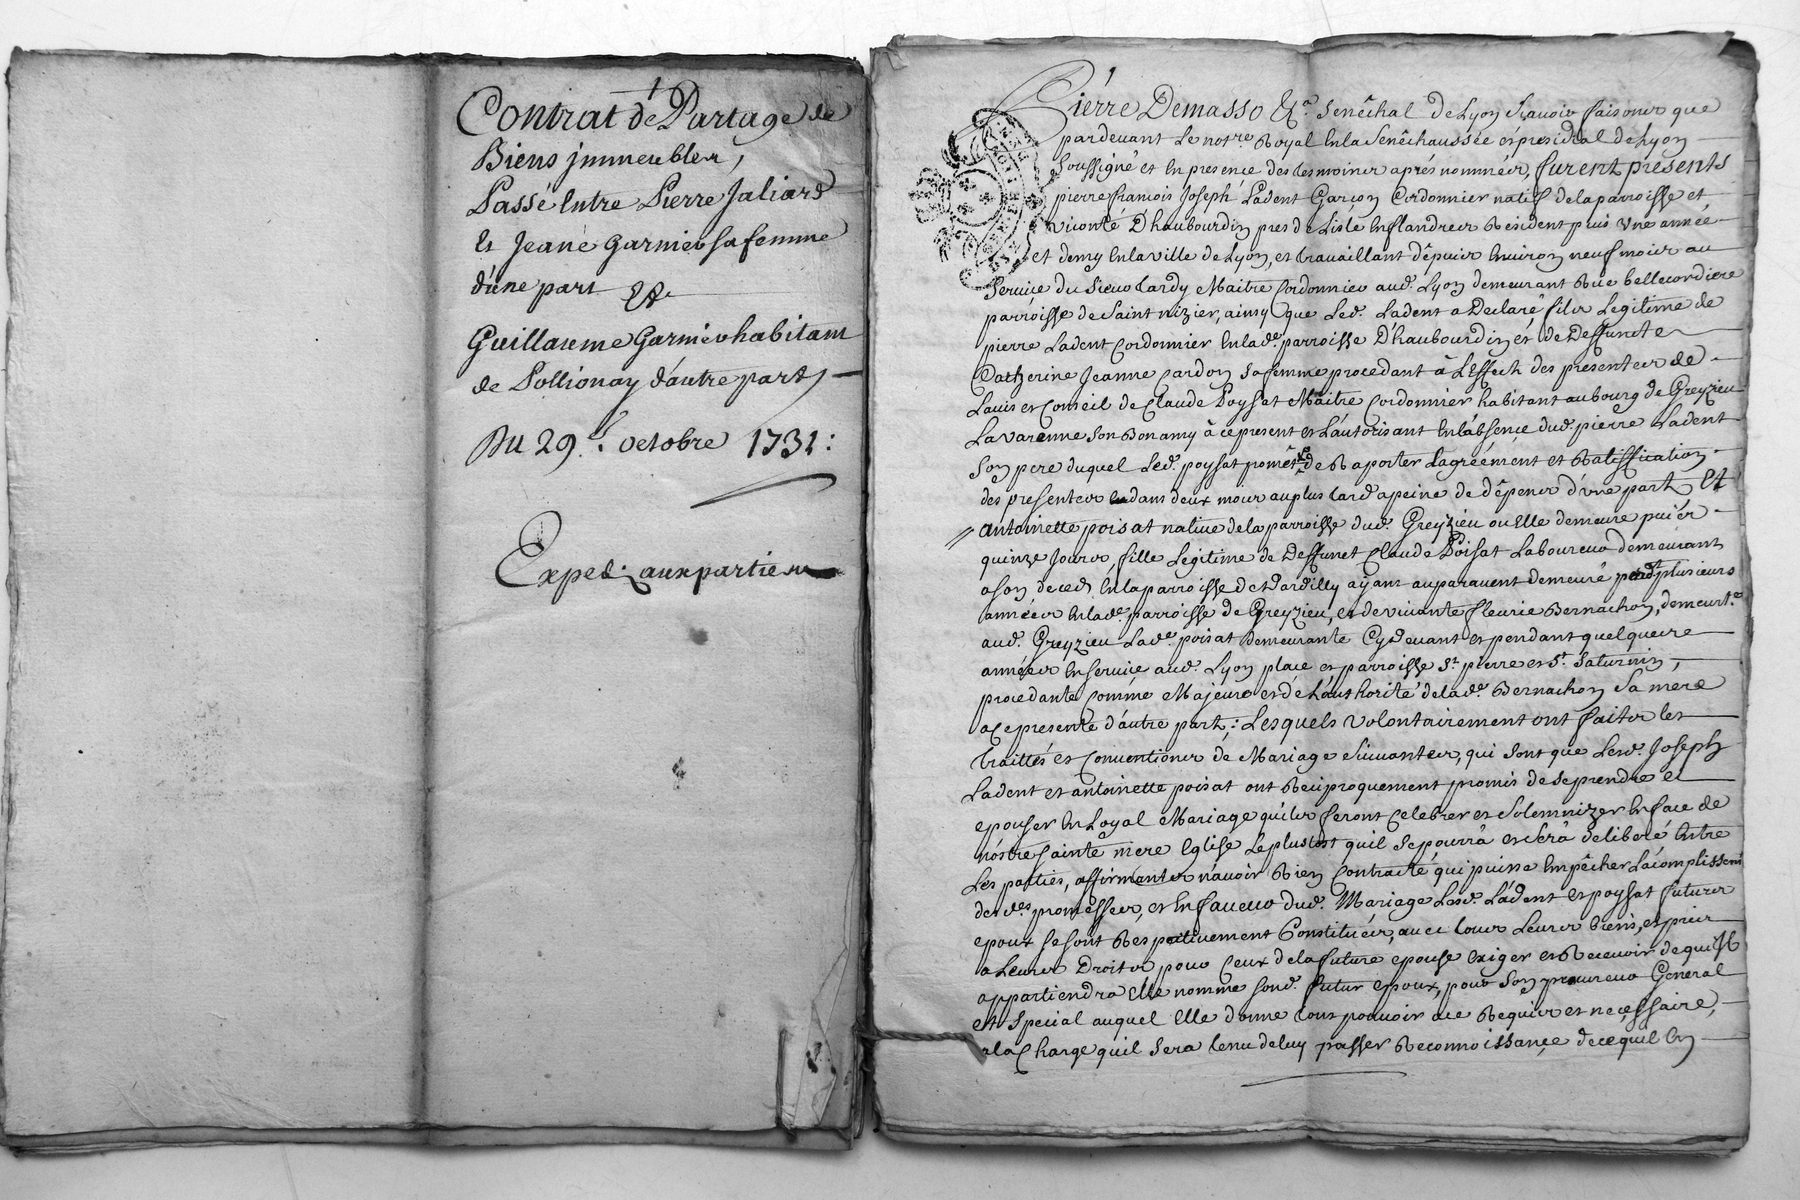 1
Contrat de Partage de
Biens jmmeubles,
Passé Entre Pierre Jaliard
Et Jeane Garnier sa femme
d'une part Et
Guillaume Garnier habitant
de Pollionay d'autre part
Du 29.e octobre 1731:
Exped. aux parties
1
Pierre Demasso Senéchal de Lyon Sçavoir faisons que
pardevant Le not.re Royal En la Senêchaussée et présidial de Lyon
soussigné et En presence des tesmoins aprés nommés, furent présents
pierre françois Joseph Ladent Garçon Cordonnier natif de la parroisse et
viconté D'haubourdin pres de Lisle En flandres Resident puis Une année
et demy En la ville de Lyon, et travaillant dêpuis Environ neuf mois au
service du sieur tardy Maitre Cordonnier aud. Lyon demeurant Rüe bellecordiere
parroisse de Saint nizier, ainsy que Led. Ladent a Declaré fils Legitime de
pierre Ladent Cordonnier En lad.e parroisse D'haubourdin et de Deffunete
Catherine Jeanne Cardon sa femme procedant à L'Effect des presentes de
Lauis et Conseil de Claude Poysat Maitre Cordonnier habitant au bourg de Greyzieu
La varenne son Bon amy à ce present et L'autorisant En l'absençe dud. pierre Ladent
son pere duquel Led. poysat promêt de Raporter L'agréément et Ratiffication
des presentes dans deux mois au plus tard a peine de dêpens d'une part Et
antoinette poisat native de la parroisse dud. Greyzieu ou Elle demeure puis
quinze Jours, fille Legitime de Deffunct Claude Poisat Laboureur demeurant
a son deced En la parroisse de dardilly ayant auparavent demeuré pendt plusieurs
années En lad.e parroisse de Greyzieu, et de vivante fleurie Bernachon, demeurt.e
aud. Greyzieu Lad.e poisat demeurante Cy devant et pendant quelques
années En serviçe aud. Lyon place et parroisse St. pierre et St. Saturnin,
procedante Comme Majeure et de L'authorité de lad.e Bernachon sa mere
a ce presente d'autre part: Lesquels volontairement ont faits les
traittés et Conventions de Mariage Suivantes, qui sont que Lesd. Joseph
Ladent et antoinette poisat ont Reciproquement promis de se prendre et
epouser En Loyal Mariage qu'ils feront Celebrer et Solemnizer En face de
nôstre sainte mere Eglise Le plustost qu'il se pourrà et serà deliberé Entre
Les parties, affirmantes n'avoir Rien Contracté qui puisse Empêcher L'acomplissemt
desd.es promesses, et En faveur dud. Mariage Lesd. Ladent et poysat futurs
epoux se sont Respectivement Constitués, avec tous Leurs biens, et
a Leurs Droits pour Ceux de la future epouse Exiger et Recevoir de qui Il
appartiendra Elle nomme sond. futur epoux, pour son procureur General
et special auquel Elle donne tout pouvoir a ce Requis et neçessaire,
a la Charge qu'il sera tenu de luy passer Reconnoissançe de ce qu'il En